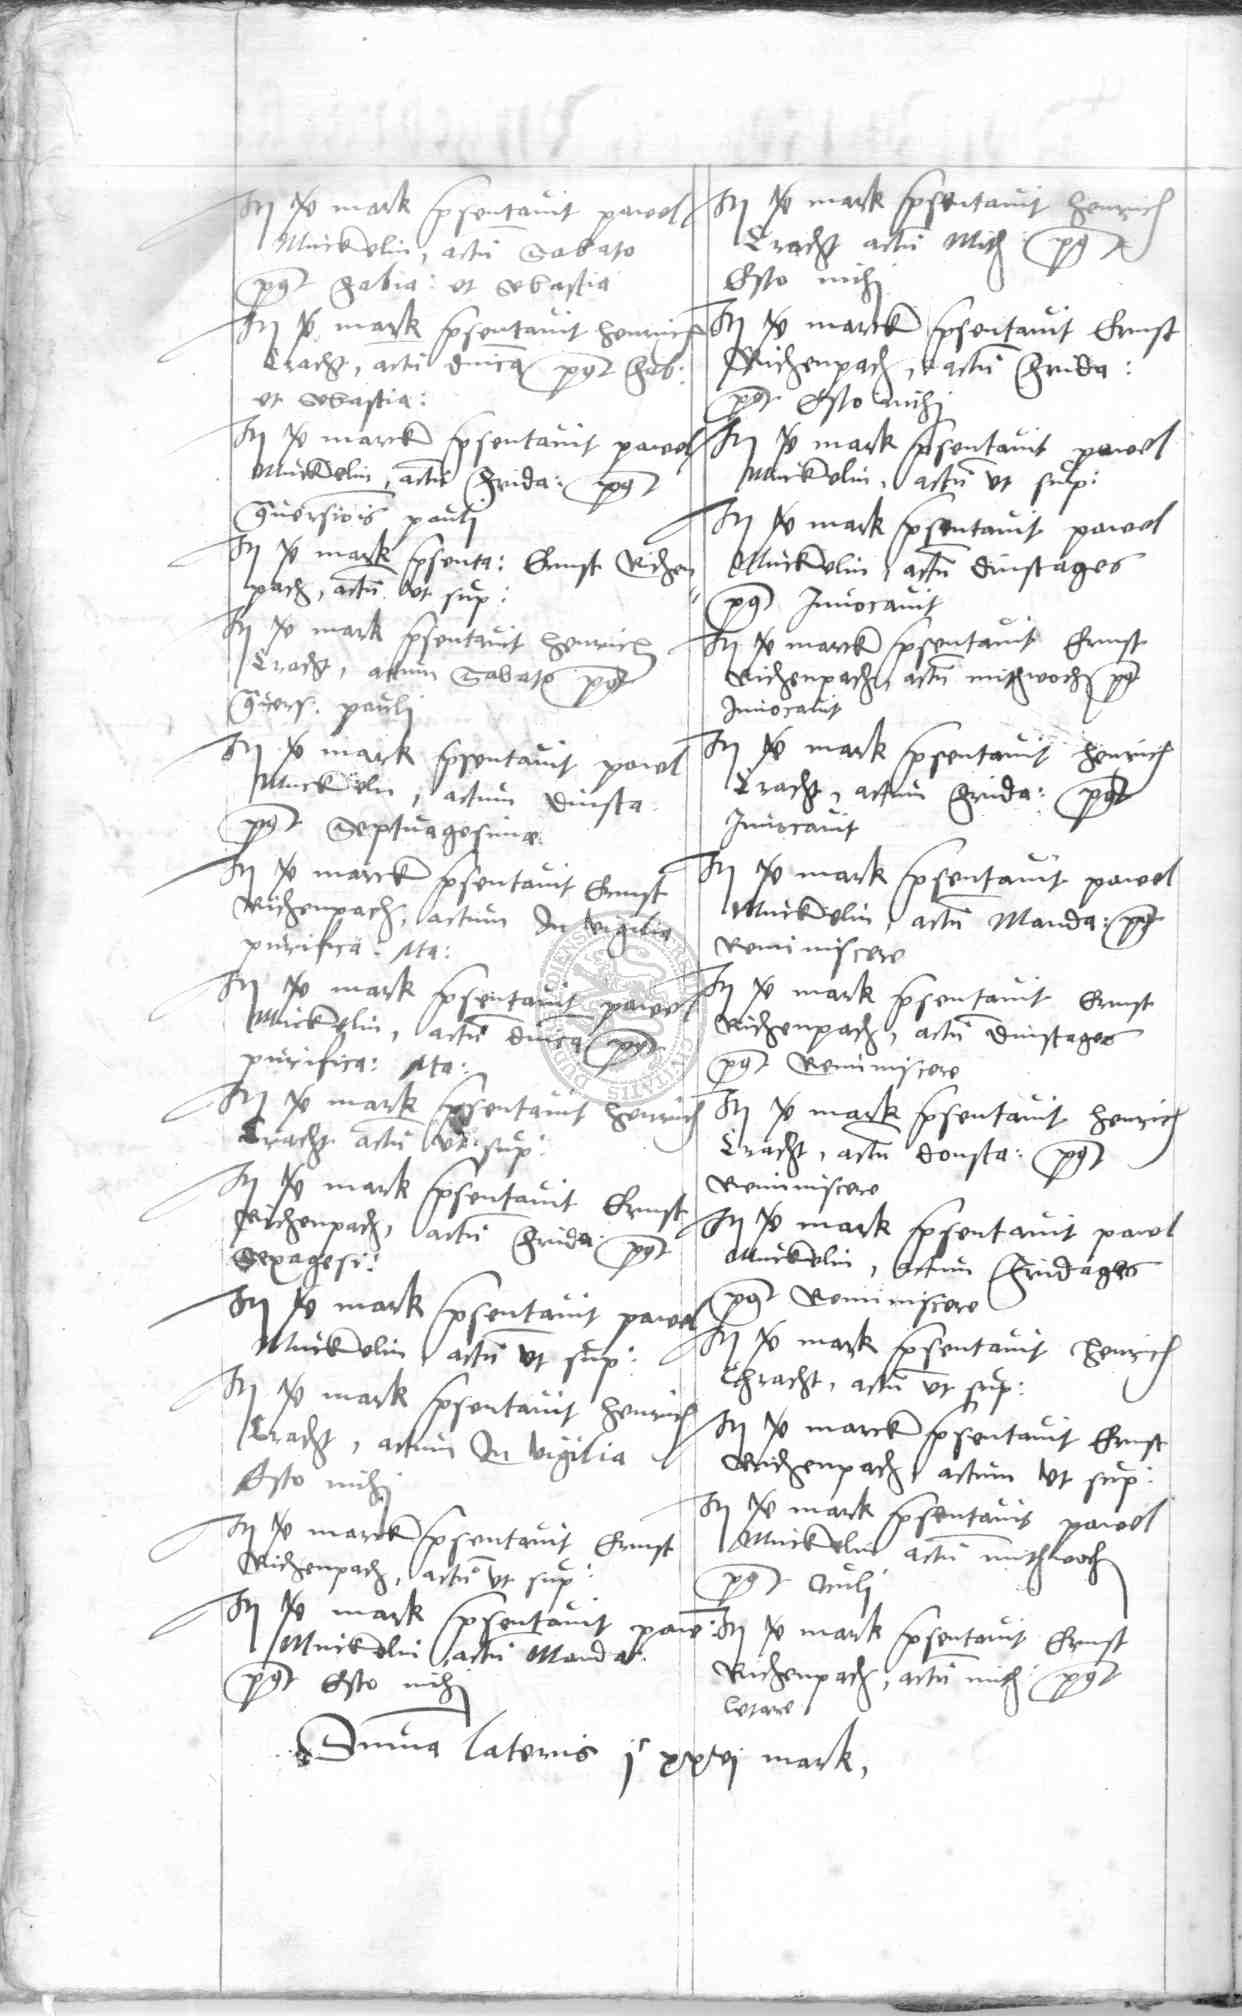 Itm mark psentauit pawel
Munckelin, actu Sabato
post Fabia: et Sebastia
Itm mark psentauit henrich
Kracht, actu dnica post Fab:
et Sebastia:
Itm marck psentauit pawel
Munckelin, actu Frida: post
9uersiois pauli
Itm mark psenta: Ernst Richen
pach, actu ut sup:
Itm mark psentauit henrich
Kracht, actum Sabato post
9uers. pauli
Itm mark psentauit pawel
Munckelin, actum dinsta
post Septuagesime
Itm marck psentauit Ernst
Richenpach, actum In vigilia
purifica: Ma:
Itm mark psentauit pawel
Munckelin, actu dnica post
purifica: Ma:
Itm mark psentauit henrich
Kracht actu ut sup:
Itm mark psentauit Ernst
Richenpach, actu Frida: post
Sexagesi:
Itm mark psentauit pawel
Munckelin, actu ut sup:
Itm mark psentauit henrich
Kracht, actum In vigilia
Esto michi
Itm marck psentauit Ernst
Richenpach, actu ut sup:
Itm mark psentauit pawe:
Munckelin actu Manda:
post Esto michi
Itm mark psentauit henrich
Kracht actu Mith post
Esto michi
Itm marck psentauit Ernst
Richenpach, actu Frida:
post Esto michi
Itm mark psentauit pawel
Munckelin, actu ut sup:
Itm mark psentauit pawel
Munckelin, actu dinstages
post Inuocauit
Itm marck psentauit Ernst
Richenpach, actu mithwoch post
Inuocauit
Itm mark psentauit henrich
Kracht, actum Frida: post
Inuocauit
Itm mark psentauit pawel
Munckelin, actu Manda: post
Reminiscere
Itm mark psentauit Ernst
Richenpach, actu dinstages
post Reminiscere
Itm mark psentauit henrich
Kracht, actu donsta: post
Reminiscere
Itm mark psentauit pawel
Munckelin, actum Fridages
post Reminiscere
Itm mark psentauit henrich
Chracht, actu ut sup:
Itm marck psentauit Ernst
Richenpach, actum ut sup:
Itm mark psentauit pawel
Munckelin actu mithwoch
post Oculi
Itm mark psentauit Ernst
Richenpach, actu mith post
letare
Suma lateris jc xxvj mark,